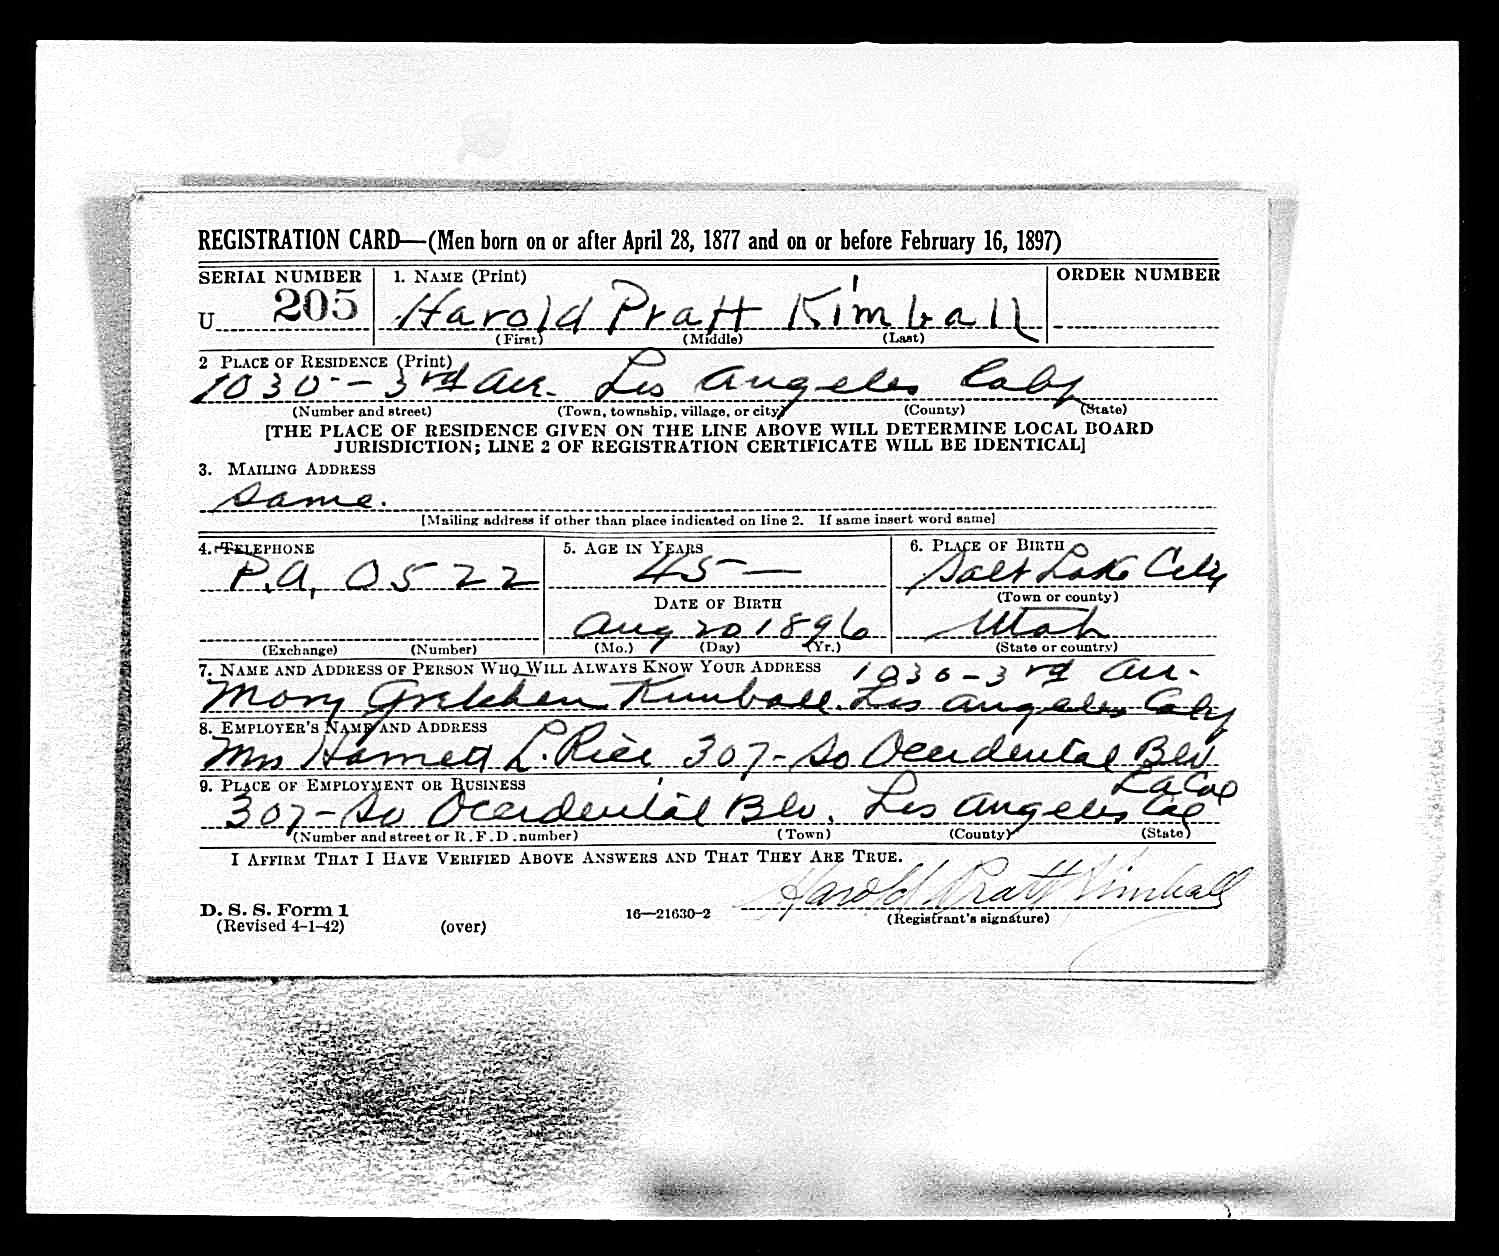 REGISTRATION CARD—(Men born on or after April 28, 1877 and on or before February 16, 1897)
SERIAL NUMBER 1. NAME (Print) ORDER NUMBER
U 205 Harold Pratt Kimball
(First) (Middle) (Last)
2 PLACE OF RESIDENCE (Print)
1030 - 3rd Av. Los Angeles Calif
(Number and street) (Town, township, village, or city) (County) (State)
[THE PLACE OF RESIDENCE GIVEN ON THE LINE ABOVE WILL DETERMINE LOCAL BOARD
JURISDICTION; LINE 2 OF REGISTRATION CERTIFICATE WILL BE IDENTICAL]
3. MAILING ADDRESS
Same.
[Mailing address if other than place indicated on line 2. If same insert word same]
4. TELEPHONE 5. AGE IN YEARS 6. PLACE OF BIRTH
P.A. 0522 45— Salt Lake City
DATE OF BIRTH (Town or county)
Aug 20 1896 Utah
(Exchange) (Number) (Mo.) (Day) (Yr.) (State or country)
7. NAME AND ADDRESS OF PERSON WHO WILL ALWAYS KNOW YOUR ADDRESS 1030-3rd Av.
Mary Gretchen Kimball. Los Angeles Calif
8. EMPLOYER'S NAME AND ADDRESS
Mrs Harriett L. Rice 307-So Occidental Blv
9. PLACE OF EMPLOYMENT OR BUSINESS La Cal
307-So Occidental Blv. Los Angeles Cal
(Number and street or R. F. D. number) (Town) (County) (State)
I AFFIRM THAT I HAVE VERIFIED ABOVE ANSWERS AND THAT THEY ARE TRUE.
Harold Pratt Kimball
D. S. S. Form 1 16—21630-2 (Registrant's signature)
(Revised 4-1-42) (over)